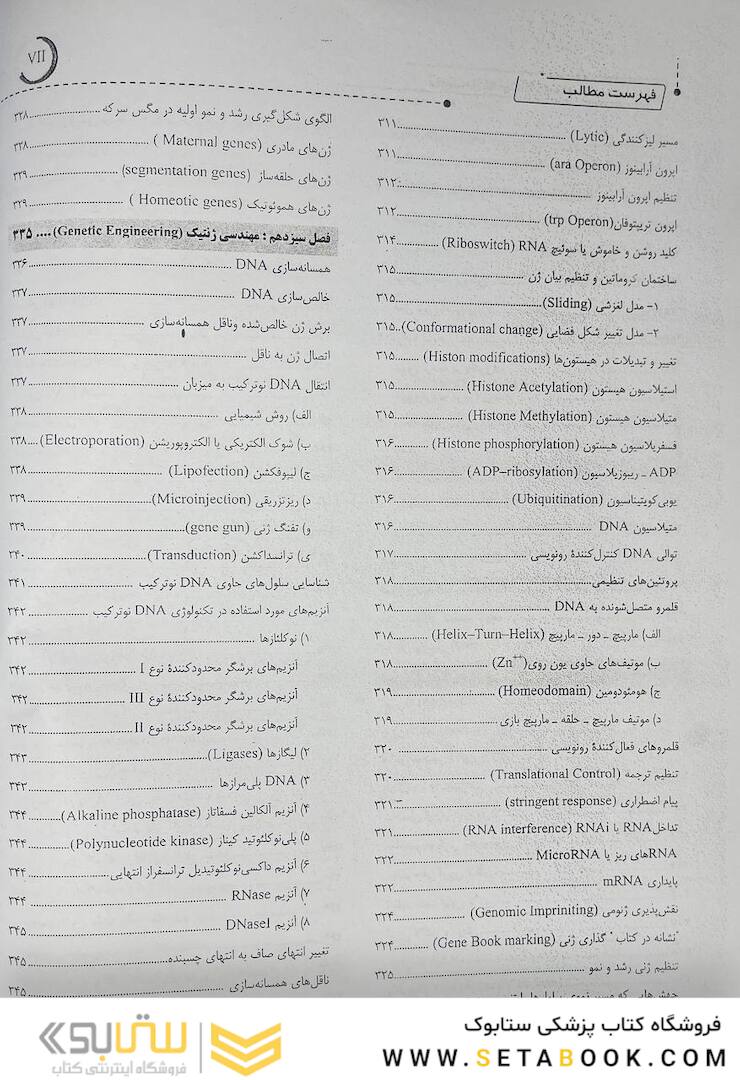 VII
فهرست مطالب
مسیر لیزکنندگی (Lytic) ........ ۳۱۱
اپرون آرابینوز (ara Operon) ........ ۳۱۱
تنظیم اپرون آرابینوز ........ ۳۱۲
اپرون تریپتوفان (trp Operon) ........ ۳۱۲
کلید روشن و خاموش یا سوئیچ RNA (Riboswitch) ........ ۳۱۴
ساختمان کروماتین و تنظیم بیان ژن ........ ۳۱۵
۱- مدل لغزشی (Sliding) ........ ۳۱۵
۲- مدل تغییر شکل فضایی (Conformational change) .. ۳۱۵
تغییر و تبدیلات در هیستون‌ها (Histon modifications) ........ ۳۱۵
استیلاسیون هیستون (Histone Acetylation) ........ ۳۱۵
متیلاسیون هیستون (Histone Methylation) ........ ۳۱۵
فسفریلاسیون هیستون (Histone phosphorylation) ........ ۳۱۶
ADP ـ ریبوزیلاسیون (ADP–ribosylation) ........ ۳۱۶
یوبی‌کویتیناسیون (Ubiquitination) ........ ۳۱۶
متیلاسیون DNA ........ ۳۱۶
توالی DNA کنترل‌کنندۀ رونویسی ........ ۳۱۷
پروتئین‌های تنظیمی ........ ۳۱۸
قلمرو متصل‌شونده به DNA ........ ۳۱۸
الف) مارپیچ ـ دور ـ مارپیچ (Helix–Turn–Helix) ........ ۳۱۸
ب) موتیف‌های حاوی یون روی (Zn++) ........ ۳۱۸
ج) هومئودومین (Homeodomain) ........ ۳۱۹
د) موتیف مارپیچ ـ حلقه ـ مارپیچ بازی ........ ۳۱۹
قلمروهای فعال‌کنندۀ رونویسی ........ ۳۲۰
تنظیم ترجمه (Translational Control) ........ ۳۲۰
پیام اضطراری (stringent response) ........ ۳۲۱
تداخل RNA یا RNAi (RNA interference) ........ ۳۲۱
RNAهای ریز یا MicroRNA ........ ۳۲۲
پایداری mRNA ........ ۳۲۲
نقش‌پذیری ژنومی (Genomic Impriniting) ........ ۳۲۴
"نشانه در کتاب" گذاری ژنی (Gene Book marking) ........ ۳۲۴
تنظیم ژنی رشد و نمو ........ ۳۲۵
الگوی شکل‌گیری رشد و نمو اولیه در مگس سرکه ........ ۳۲۸
ژن‌های مادری (Maternal genes) ........ ۳۲۸
ژن‌های حلقه‌ساز (segmentation genes) ........ ۳۲۹
ژن‌های هموئوتیک (Homeotic genes) ........ ۳۲۹
فصل سیزدهم : مهندسی ژنتیک (Genetic Engineering) .... ۳۳۵
همسانه‌سازی DNA ........ ۳۳۶
خالص‌سازی DNA ........ ۳۳۷
برش ژن خالص‌شده وناقل همسانه‌سازی ........ ۳۳۷
اتصال ژن به ناقل ........ ۳۳۷
انتقال DNA نوترکیب به میزبان ........ ۳۳۷
الف) روش شیمیایی ........ ۳۳۸
ب) شوک الکتریکی یا الکتروپوریشن (Electroporation) .... ۳۳۸
ج) لیپوفکشن (Lipofection) ........ ۳۳۸
د) ریزتزریقی (Microinjection) ........ ۳۳۹
و) تفنگ ژنی (gene gun) ........ ۳۳۹
ی) ترانسداکشن (Transduction) ........ ۳۴۰
شناسایی سلول‌های حاوی DNA نوترکیب ........ ۳۴۱
آنزیم‌های مورد استفاده در تکنولوژی DNA نوترکیب ........ ۳۴۲
۱) نوکلئازها ........ ۳۴۲
آنزیم‌های برشگر محدودکنندۀ نوع I ........ ۳۴۲
آنزیم‌های برشگر محدودکنندۀ نوع III ........ ۳۴۲
آنزیم‌های برشگر محدودکنندۀ نوع II ........ ۳۴۲
۲) لیگازها (Ligases) ........ ۳۴۳
۳) DNA پلی‌مرازها ........ ۳۴۳
۴) آنزیم آلکالین فسفاتاز (Alkaline phosphatase) ........ ۳۴۴
۵) پلی‌نوکلئوتید کیناز (Polynucleotide kinase) ........ ۳۴۴
۶) آنزیم داکسی‌نوکلئوتیدیل ترانسفراز انتهایی ........ ۳۴۴
۷) آنزیم RNase ........ ۳۴۴
۸) آنزیم DNaseI ........ ۳۴۵
تغییر انتهای صاف به انتهای چسبنده ........ ۳۴۵
ناقل‌های همسانه‌سازی ........ ۳۴۵
ستابوک
فروشگاه اینترنتی کتاب
فروشگاه کتاب پزشکی ستابوک
WWW.SETABOOK.COM